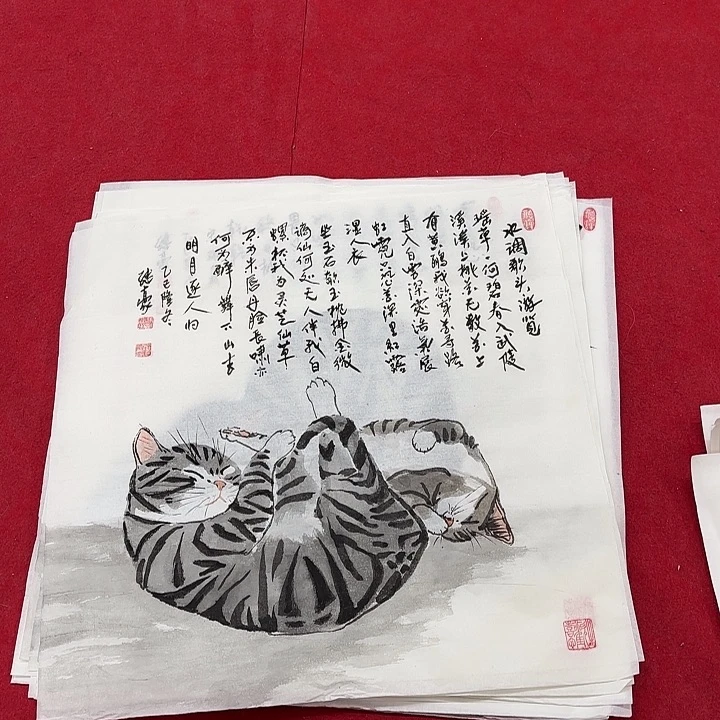 水调歌头 游览
瑶草一何碧春入武陵
溪溪上桃花无数花上
有黄鹂我欲穿花寻路
直入白云深处浩气展
虹霓只恐花深里红露
湿人衣
坐玉石欹玉枕拂金徽
谪仙何处无人伴我白
螺杯我为灵芝仙草
不为朱唇丹脸长啸亦
何为醉舞下山去
明月逐人归
乙巳隆冬
豪